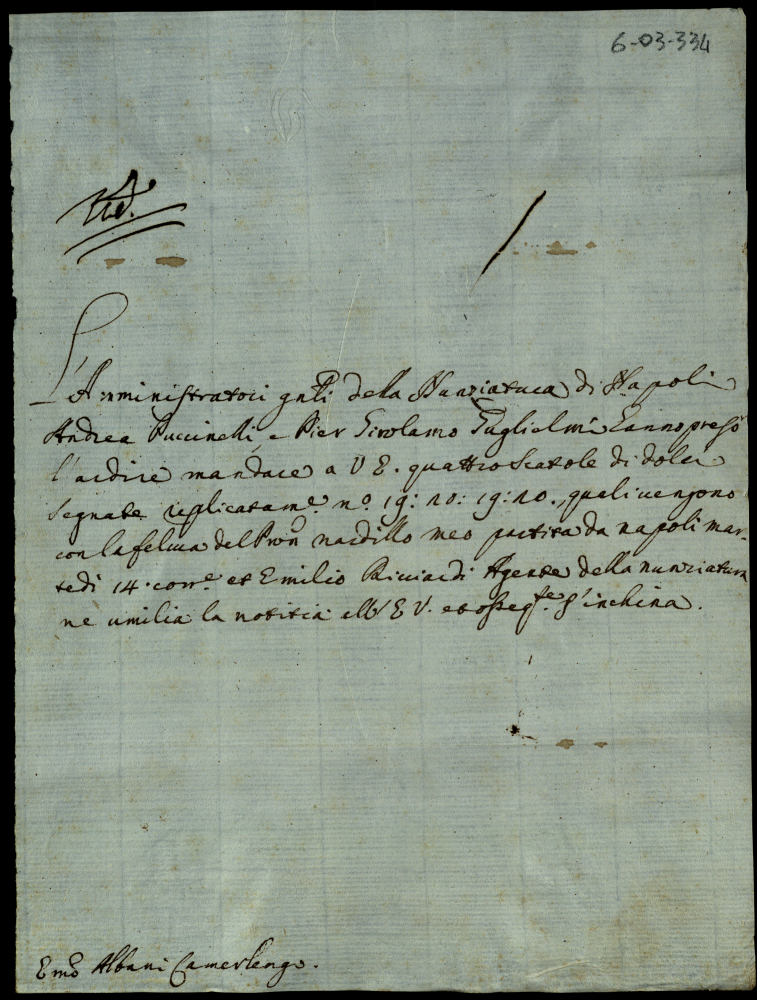 6-03-334
L'Amministratori gnãli della Nunziatura di Napoli
Andrea Puccinelli, e Pier Girolamo Guglielmi hanno preso
l'ardire mandare a V E. quattro scatole di dolci
segnate replicatamẽ. nº. 19: 20: 19: 20., quali vengono
con la feluca del Prõn nardillo meo partita da napoli mar-
tedi 14. corrẽ. et Emilio Ricciardi Agente della nunziatura
ne umilia la notitia all'E V. et ossegq.te s'inchina.
Emõ Albani Camerlengo.